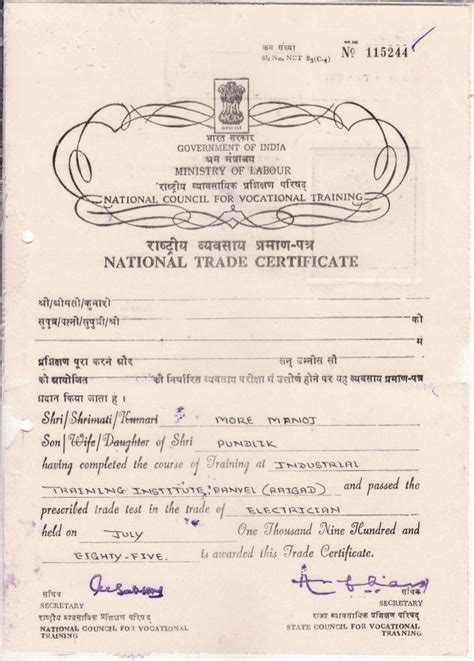 क्रम संख्या
Sl: No. NCT B3(C-4) № 115244
भारत सरकार
GOVERNMENT OF INDIA
श्रम मंत्रालय
MINISTRY OF LABOUR
राष्ट्रीय व्यवसायिक प्रशिक्षण परिषद्
NATIONAL COUNCIL FOR VOCATIONAL TRAINING
राष्ट्रीय व्यवसाय प्रमाण-पत्र
NATIONAL TRADE CERTIFICATE
श्री/श्रीमती/कुमारी
सुपुत्र/पत्नी/सुपुत्री/श्री को
में
प्रशिक्षण पूरा करने और सन् उन्नीस सौ
को आयोजित की निर्धारित व्यवसाय परीक्षा में उत्तीर्ण होने पर यह व्यवसाय प्रमाण-पत्र
प्रदान किया जाता है ।
Shri/Shrimati/Kumari MORE MANOJ
Son/Wife/Daughter of Shri PUNDLIK
having completed the course of Training at INDUSTRIAL
TRAINING INSTITUTE, PANVEL (RAIGAD) and passed the
prescribed trade test in the trade of ELECTRICIAN
held on JULY One Thousand Nine Hundred and
EIGHTY-FIVE. is awarded this Trade Certificate.
सचिव
SECRETARY
राष्ट्रीय व्यवसायिक प्रशिक्षण परिषद्
NATIONAL COUNCIL FOR VOCATIONAL
TRAINING
सचिव
SECRETARY
राज्य व्यवसायिक प्रशिक्षण परिषद्
STATE COUNCIL FOR VOCATIONAL
TRAINING